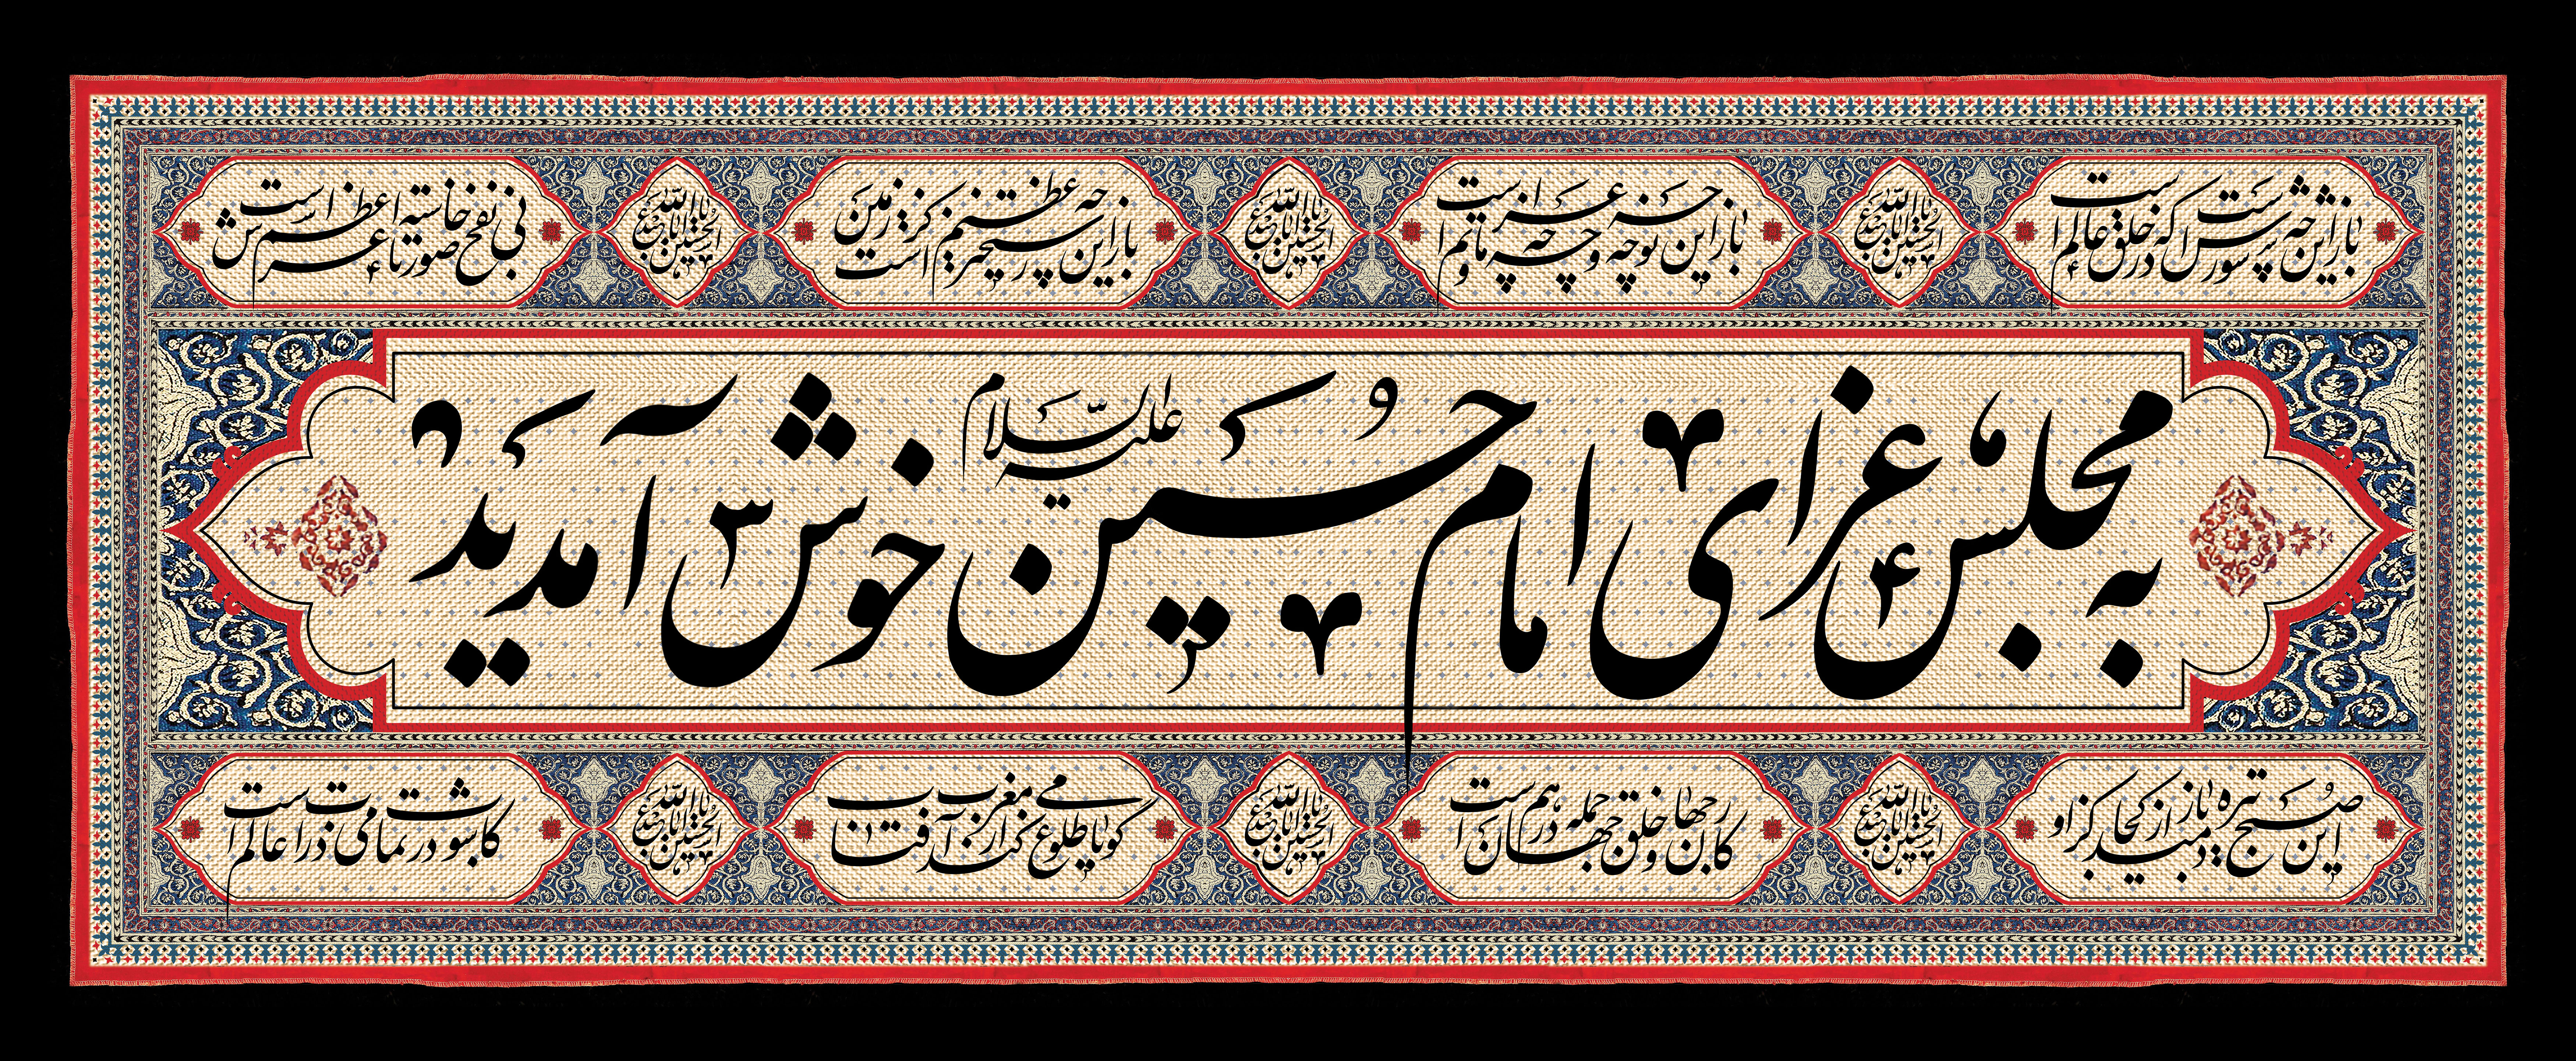 باز این چه شورش است که در خلق عالم است
یا اباعبدالله الحسین
باز این چه نوحه و چه عزا و چه ماتم است
یا اباعبدالله الحسین
باز این چه رستخیز عظیم است کز زمین
یا اباعبدالله الحسین
بی نفخ صور خاسته تا عرش اعظم است
به مجلس عزای امام حسین علیه السلام خوش آمدید
این صبح تیره باز دمید از کجا کزاو
یا اباعبدالله الحسین
کار جهان و خلق جهان جمله در هم است
یا اباعبدالله الحسین
گویا طلوع می کند از مغرب آفتاب
یا اباعبدالله الحسین
کاشوب در تمامی ذرات عالم است